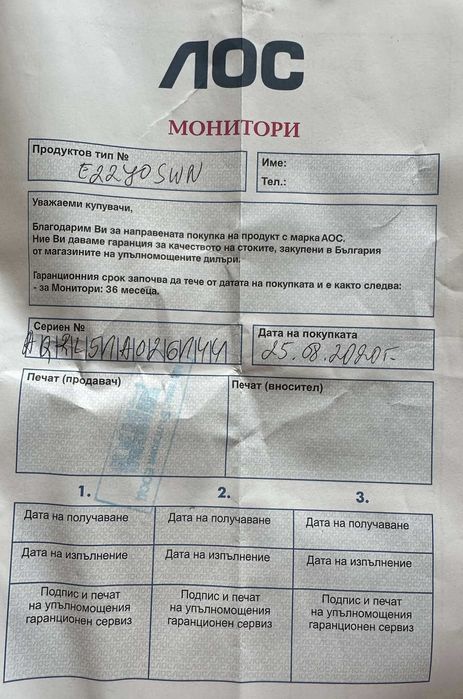 AOC
МОНИТОРИ
Продуктов тип №
E2270SWN
Име:
Тел.:
Уважаеми купувачи,
Благодарим Ви за направената покупка на продукт с марка АОС.
Ние Ви даваме гаранция за качеството на стоките, закупени в България
от магазините на упълномощените дилъри.
Гаранционния срок започва да тече от датата на покупката и е както следва:
- за Монитори: 36 месеца.
Сериен №
Дата на покупката
25.08.2020г.
Печат (продавач)
Печат (вносител)
1.
2.
3.
Дата на получаване
Дата на получаване
Дата на получаване
Дата на изпълнение
Дата на изпълнение
Дата на изпълнение
Подпис и печат
на упълномощения
гаранционен сервиз
Подпис и печат
на упълномощения
гаранционен сервиз
Подпис и печат
на упълномощения
гаранционен сервиз